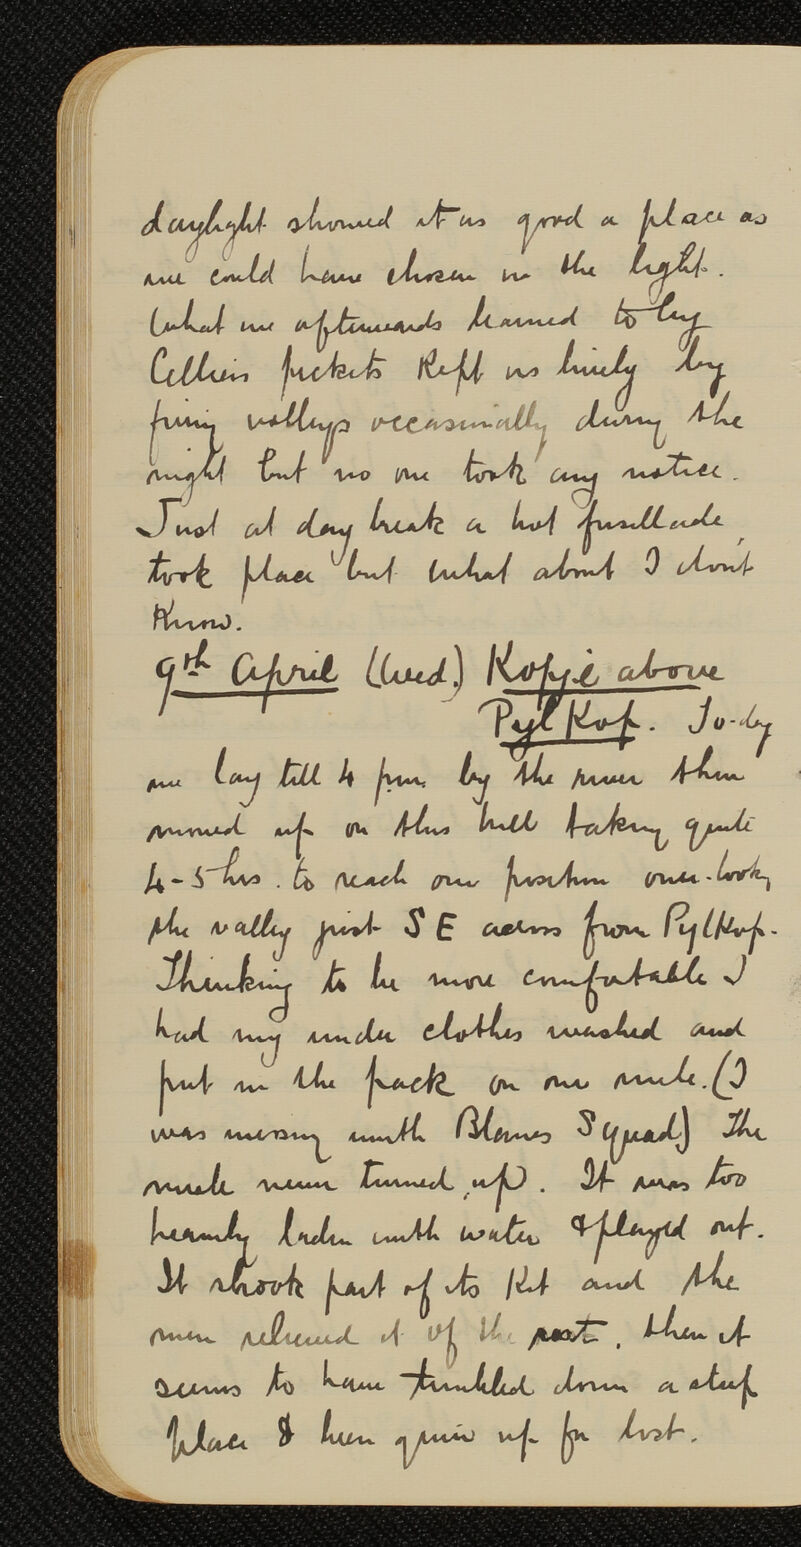 daylight showed it as good a place as
we could have chosen in the light.
What we afterwards learned to be
Celliers pickets kept us lively by
firing volleys occasionally during the
night but no one took any notice.
Just at daybreak a hot fusillade
took place but what about I don't
know.
9th April (Wed.) Kopje above
Pyl Kop. To-day
we lay till 4 p.m. by the river then
moved up on this hill taking quite
4-5 hrs. to reach our position over-looking
the valley just S E across from Pyl Kop.
Thinking to be more comfortable I
had my under clothes washed and
put in the pack on our mule. (I
was messing with Blanes Squad) The
mule never turned up. It was too
heavily laden with water & played out.
It shook part of its kit and the
men relieved it of the rest, then it
seems to have tumbled down a steep
place & been given up for lost.